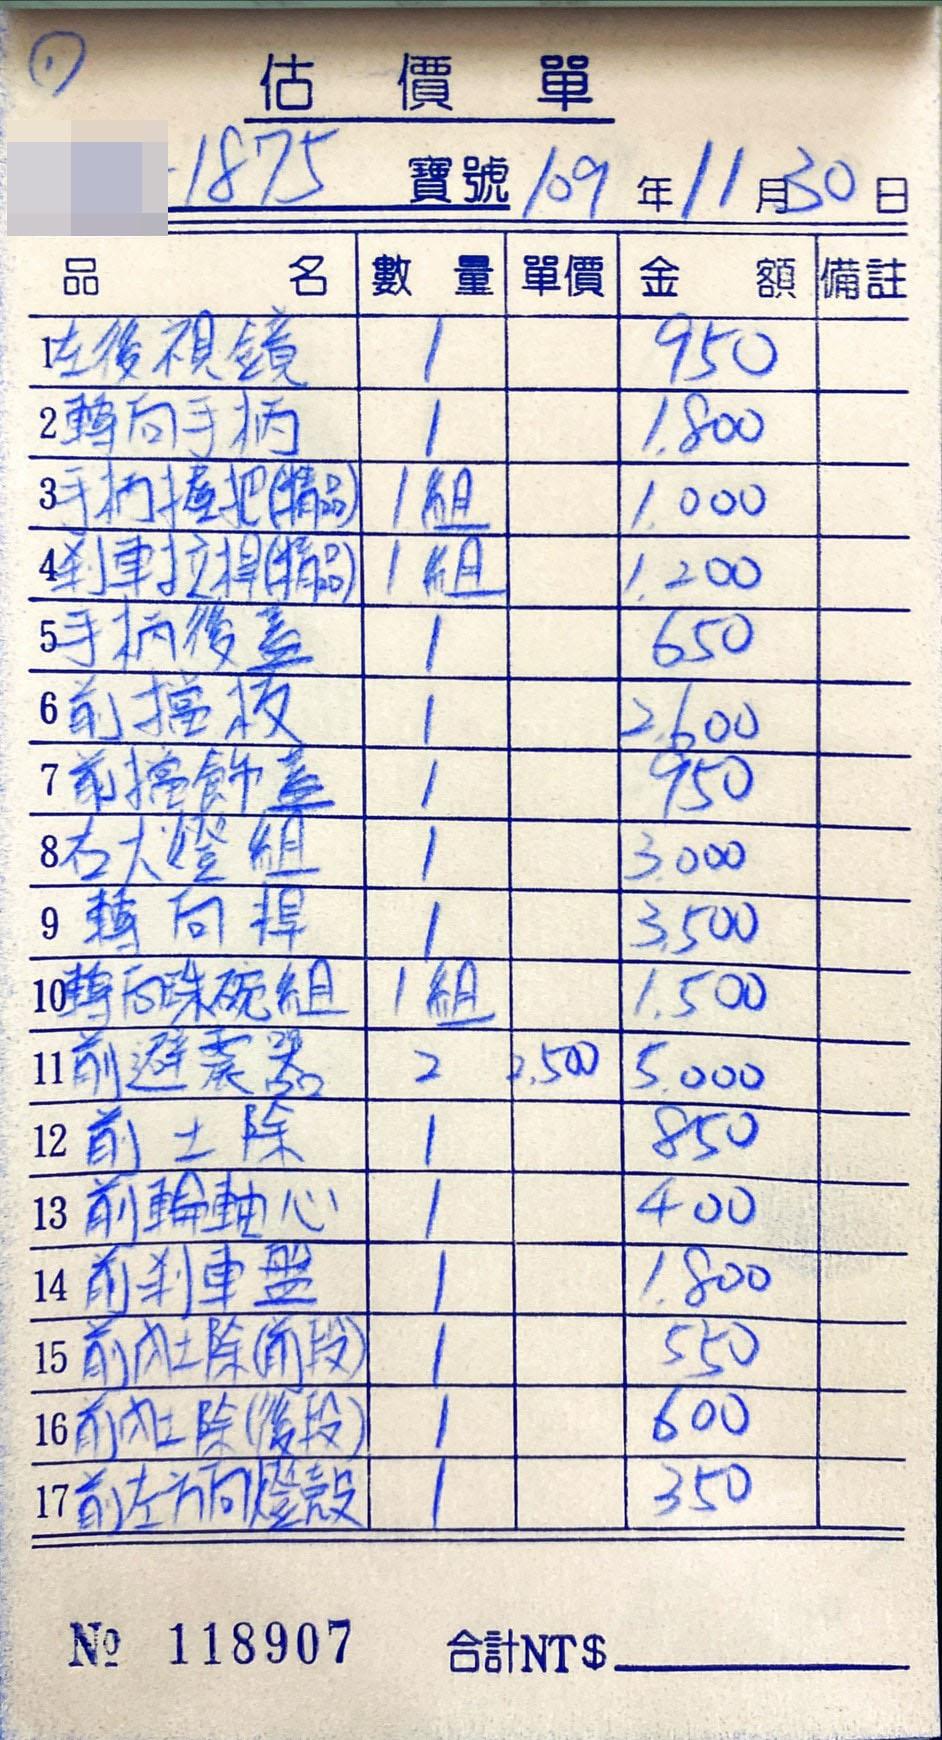 1
估價單
-1875 寶號 109年11月30日
品名 數量 單價 金額 備註
1 左後視鏡 1 950
2 轉向手柄 1 1.800
3 手柄握把(精品) 1組 1.000
4 刹車拉桿(精品) 1組 1.200
5 手柄後蓋 1 650
6 前擋板 1 2.600
7 前擋飾蓋 1 950
8 右大燈組 1 3.000
9 轉向桿 1 3.500
10 轉向珠碗組 1組 1.500
11 前避震器 2 2.500 5.000
12 前土除 1 850
13 前輪軸心 1 400
14 前刹車盤 1 1.800
15 前內土除(前段) 1 550
16 前內土除(後段) 1 600
17 前左方向燈殼 1 350
№ 118907 合計NT$